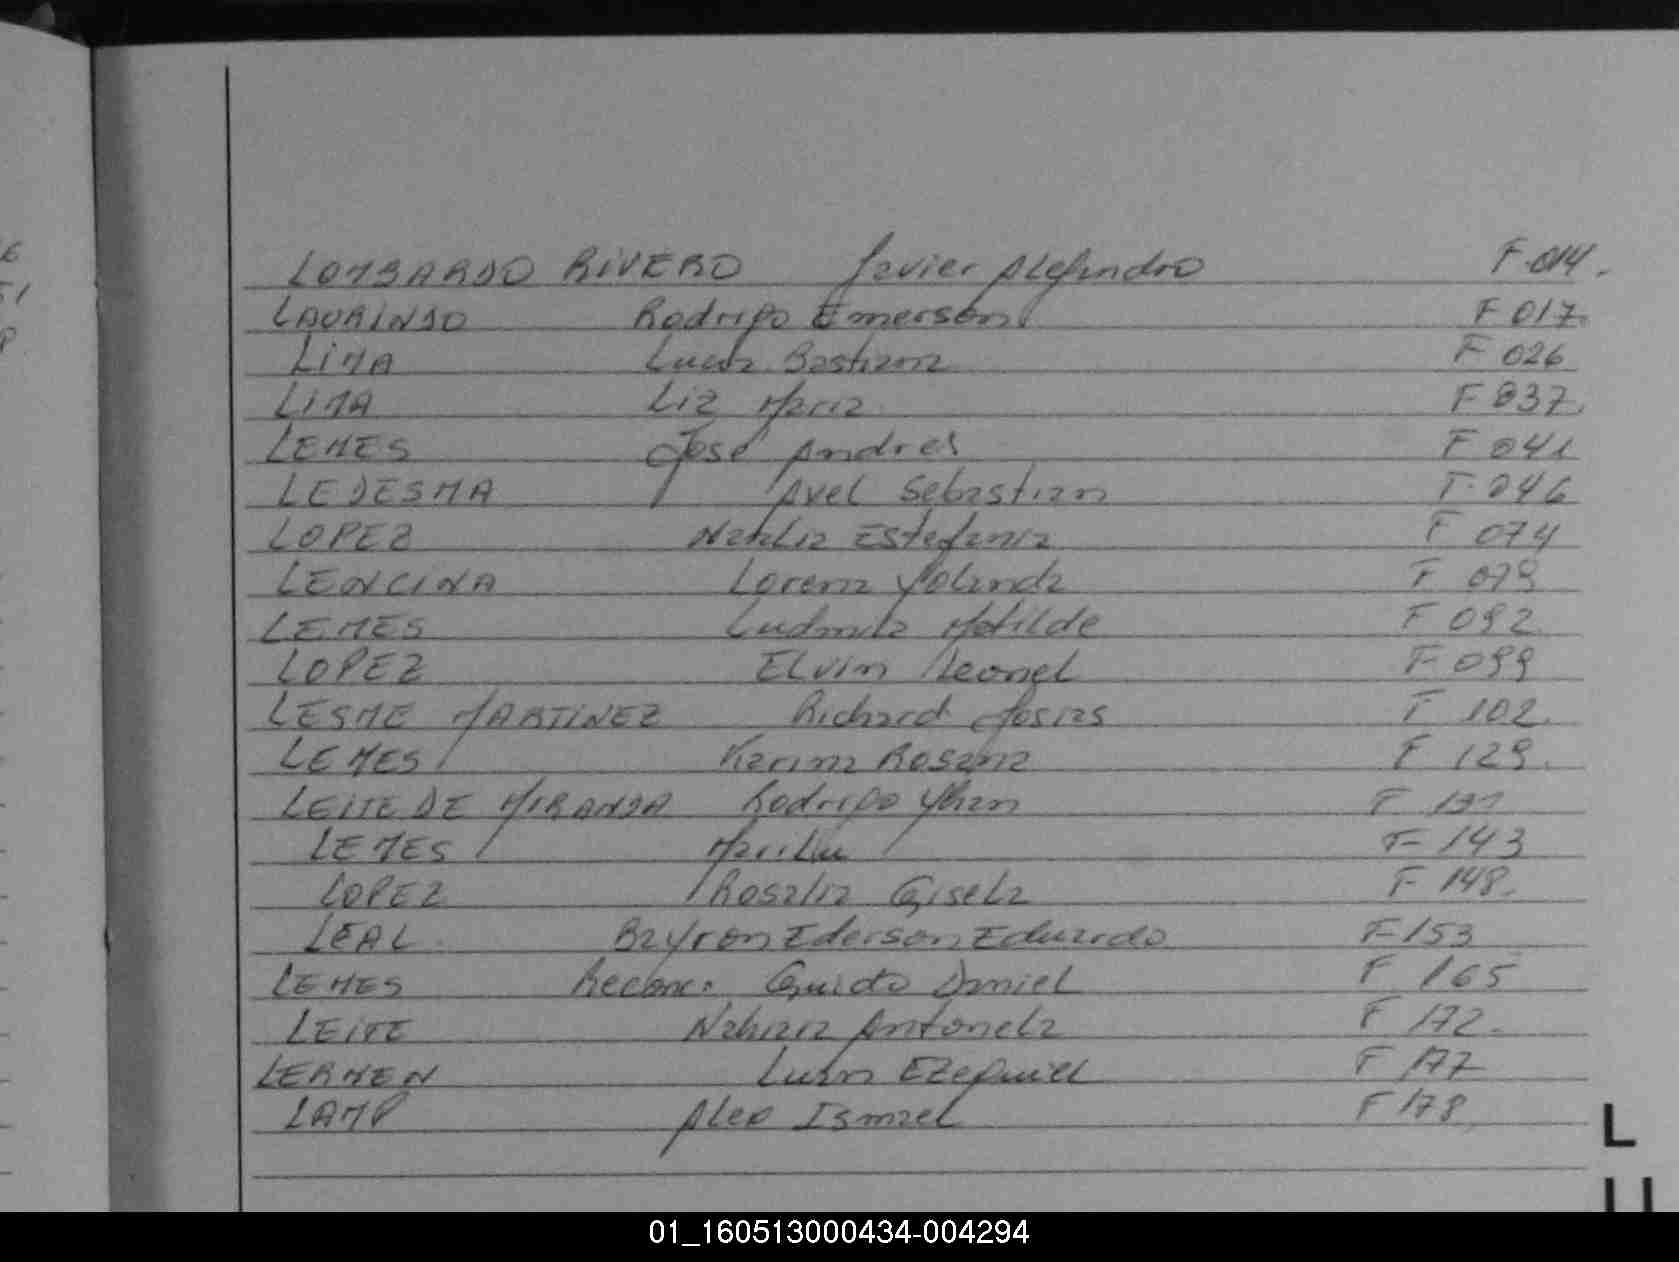 LOMBARDO RIVERO Javier Alejandro F.014.
LAURINDO Rodrigo Emerson F 017.
LIMA Lucia Bastiana F 026
LIMA Liz Maria F 037.
LEMES José Andres F 041
LEDESMA Avel Sebastian F 046
LOPEZ Natalia Estefania F 074
LENCINA Lorena Yolanda F 079
LEMES Ludmila Matilde F 092
LOPEZ Elvin Leonel F 099
LESME MARTINEZ Richard Josias F 102.
LEMES Karina Rosana F 129.
LEITE DE MIRANDA Rodrigo Yhan F 131
LEMES Marilu F 143
LOPEZ Rosalia Gisela F 148.
LEAL Bayron Ederson Eduardo F 153
LEMES Reconc: Guido Daniel F 165
LEITE Nahiara Antonela F 172.
LERMEN Luan Ezequiel F 177
LAMP Alex Ismael F 178.
L
01_160513000434-004294